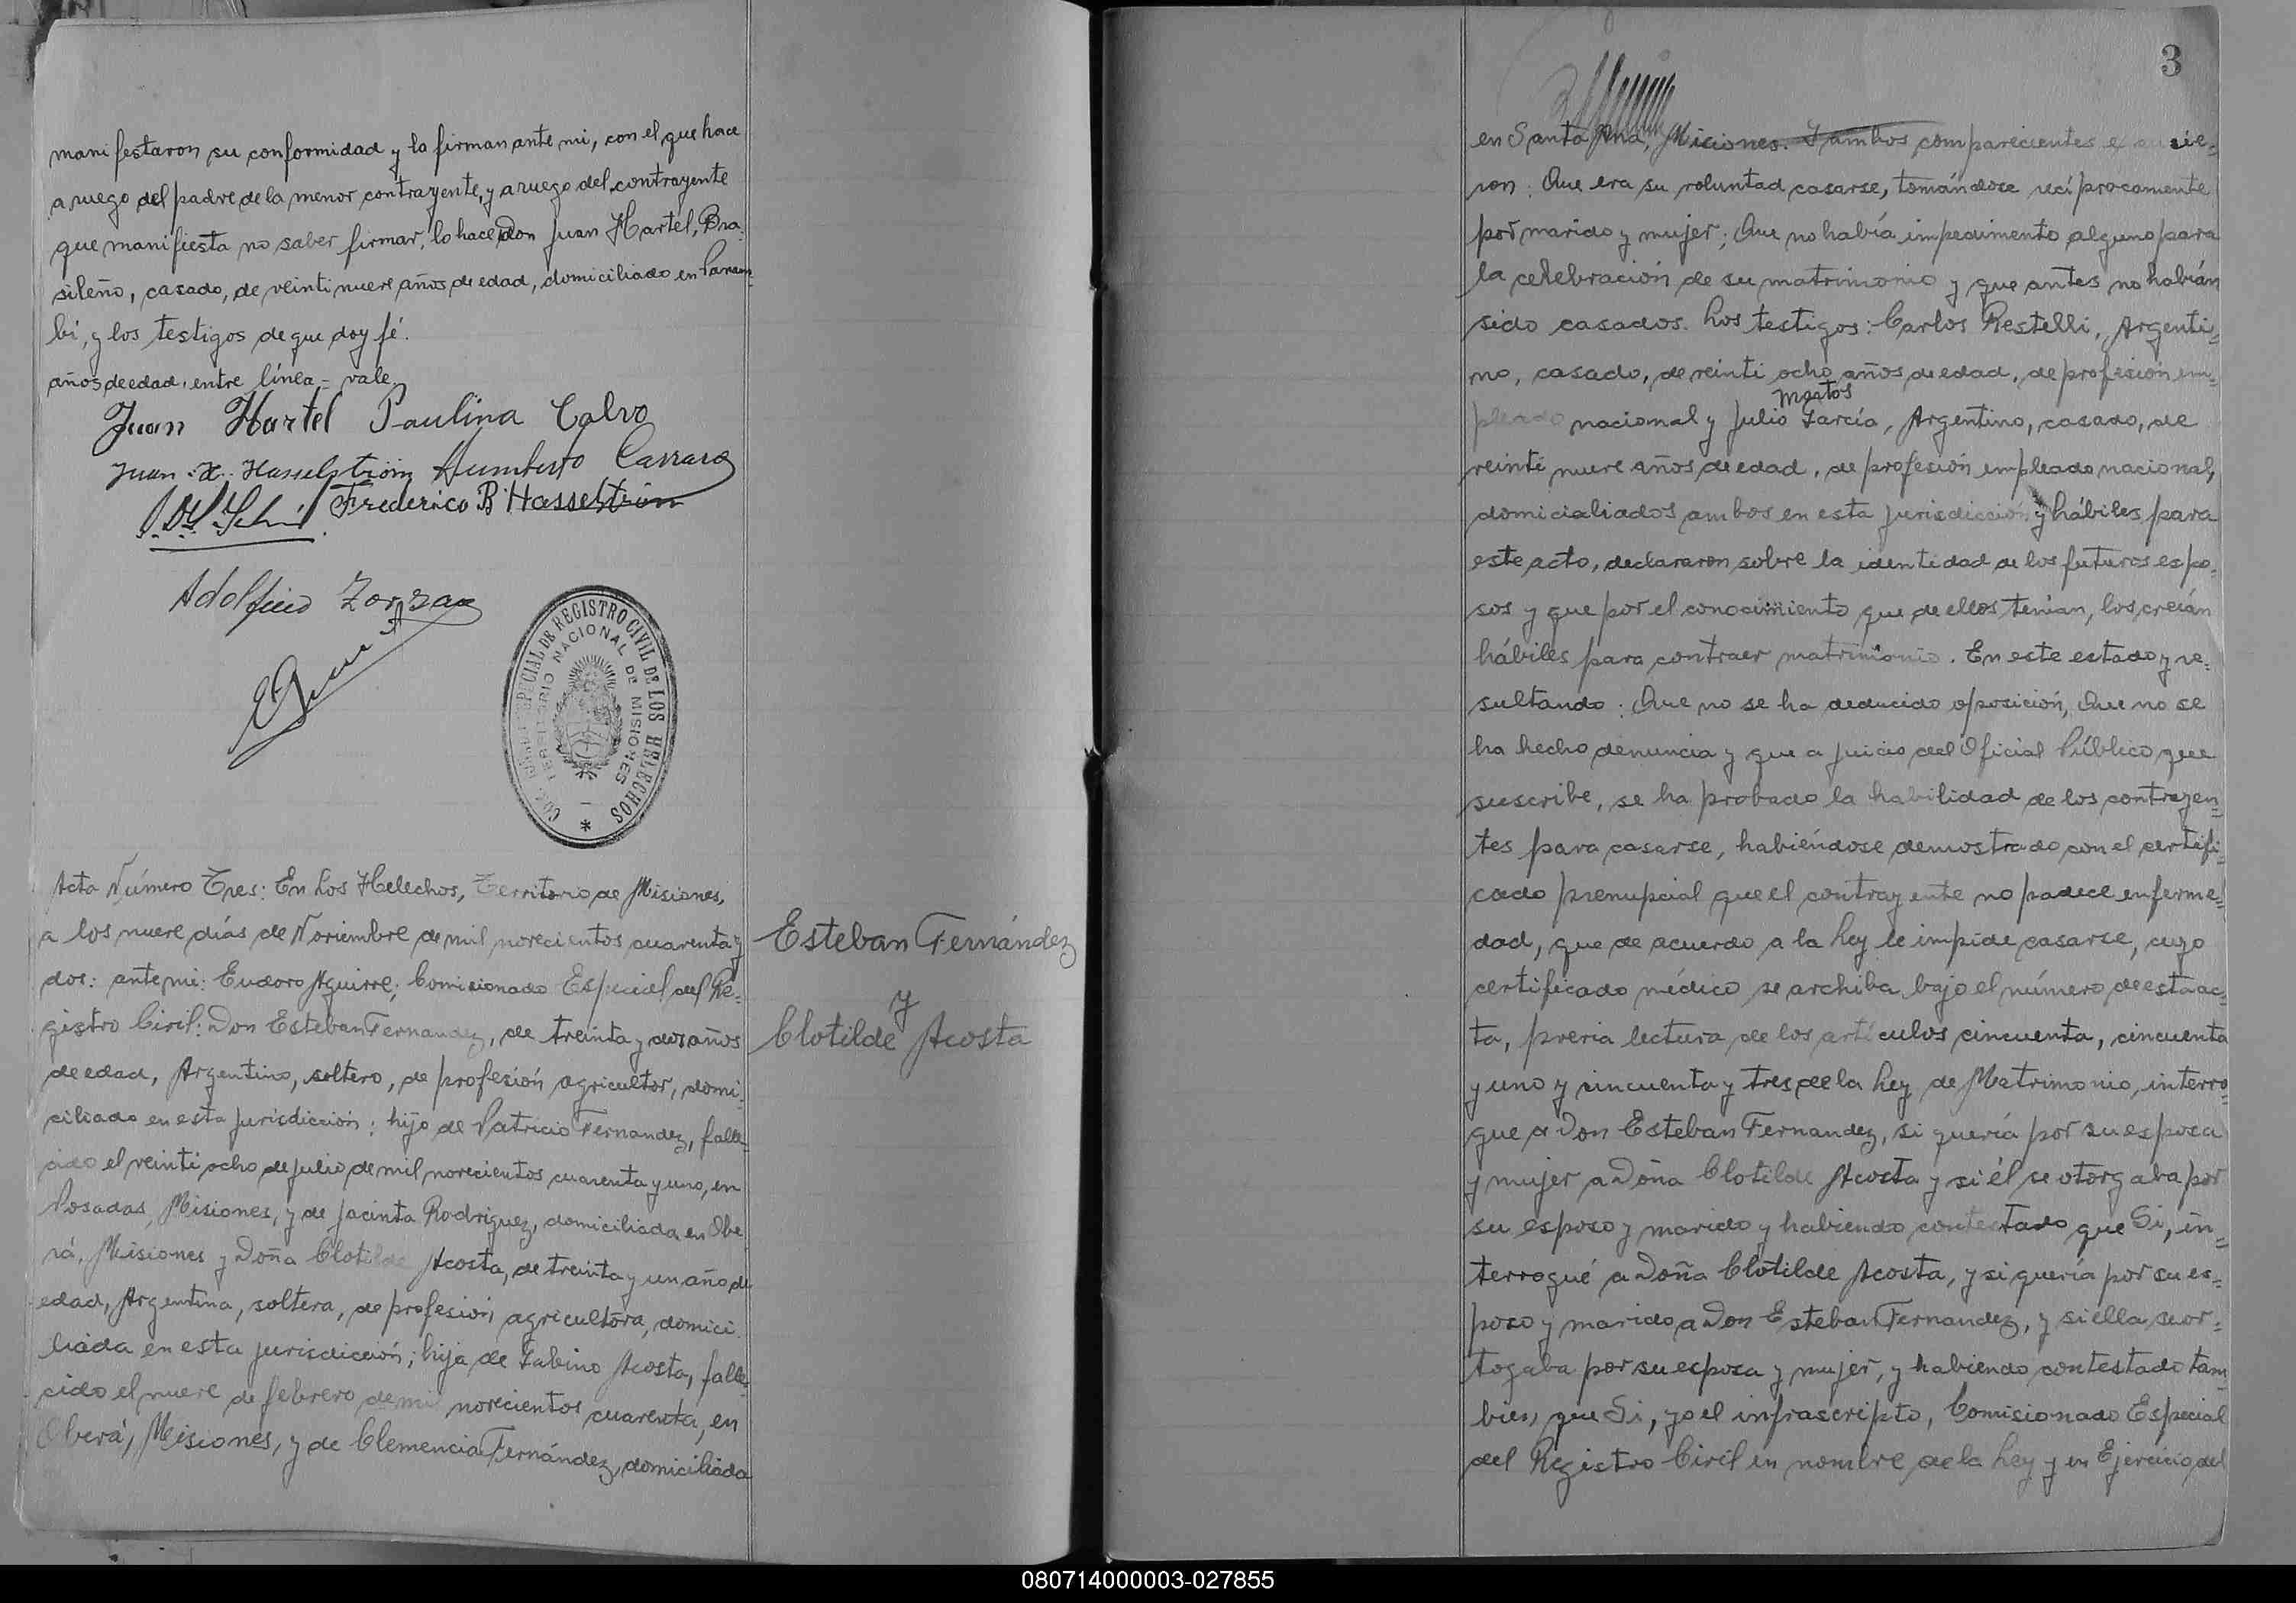 manifestaron su conformidad y la firman ante mi, con el que hace
a ruego del padre de la menor contrayente, y a ruego del contrayente
que manifiesta no saber firmar, lo hace Don Juan Hartel, Bra-
sileño, casado, de veinti nueve años de edad, domiciliado en Panam-
bí, y los testigos de que doy fé.
años de edad, entre línea = vale
Juan Hartel Paulina Calvo
Juan X. Hasselström Humberto Carrara
Frederico B. Hasselström
Adolfino
COM. ESPECIAL DE REGISTRO CIVIL DE LOS HELECHOS
TERRITORIO NACIONAL DE MISIONES
Acta Número Tres: En Los Helechos, Territorio de Misiones,
a los nueve días de Noviembre de mil novecientos cuarenta y
dos: ante mi: Eudoro Aguirre; Comisionado Especial del Re-
gistro Civil: Don Esteban Fernandez, de treinta y dos años
de edad, Argentino, soltero, de profesión agricultor, domi-
ciliado en esta jurisdicción; hijo de Patricio Fernandez, falle-
cido el veinti ocho de julio de mil novecientos cuarenta y uno, en
Posadas, Misiones, y de Jacinta Rodriguez, domiciliada en Obe-
rá, Misiones y Doña Clotilde Acosta, de treinta y un año de
edad, Argentina, soltera, de profesión agricultora, domici-
liada en esta jurisdicción; hija de Gabino Acosta, falle-
cido el nueve de febrero de mil novecientos cuarenta, en
Oberá, Misiones, y de Clemencia Fernández, domiciliada
Esteban Fernández
y
Clotilde Acosta
3
en Santa Ana, Misiones. Y ambos comparecientes expusie-
ron: Que era su voluntad casarse, tomándose recíprocamente
por marido y mujer; Que no había impedimento alguno para
la celebración de su matrimonio y que antes no habían
sido casados. Los testigos: Carlos Restelli, Argenti-
no, casado, de veinti ocho años de edad, de profesión em-
Mattos
pleado nacional y Julio García, Argentino, casado, de
veinti nueve años de edad, de profesión empleado nacional,
domicialiados ambos en esta jurisdicción y hábiles para
este acto, declararon sobre la identidad de los futuros espo-
sos y que por el conocimiento que de ellos tenían, los creían
hábiles para contraer matrimonio. En este estado y re-
sultando: Que no se ha deducido oposición, Que no se
ha hecho denuncia y que a juicio del Oficial Público que
suscribe, se ha probado la habilidad de los contrayen-
tes para casarse, habiéndose demostrado con el certifi-
cado prenupcial que el contrayente no padece enferme-
dad, que de acuerdo a la Ley le impide casarse, cuyo
certificado médico se archiba bajo el número de esta ac-
ta, previa lectura de los artículos cincuenta, cincuenta
y uno y cincuenta y tres de la Ley de Matrimonio, interro-
gue a Don Esteban Fernandez, si quería por su esposa
y mujer a Doña Clotilde Acosta y si él se otorgaba por
su esposo y marido y habiendo contestado que Si, in-
terrogué a Doña Clotilde Acosta, y si quería por su es-
poso y marido a Don Esteban Fernandez, y si ella se or-
togaba por su esposa y mujer, y habiendo contestado tam-
bien que Si, yo el infrascripto, Comisionado Especial
del Registro Civil en nombre de la Ley y en Ejercicio del
080714000003-027855